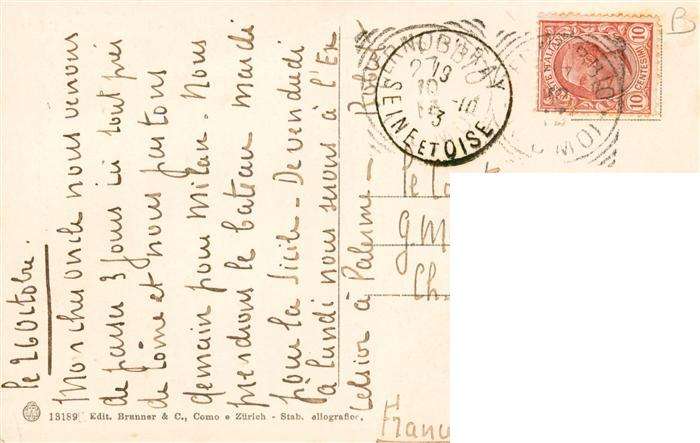 le 26 Octobre.
Mon cher oncle nous venons
de passer 3 jours ici tout près
de Côme et nous partons
demain pour Milan. Nous
prendrons le bateau mardi
pour la Sicile. De vendredi
à lundi nous serons à l'Ex
celsior à Palerme. Robert
SEINE ET OISE
10 CENTESIMI 10
B
G.M
Ch.
Franc
13189 Edit. Brunner & C., Como e Zürich - Stab. eliografico.